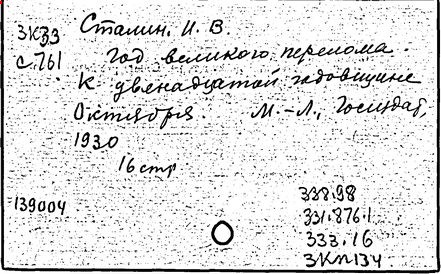 3К33
С.761
Сталин. И. В.
Год великого перелома.
К двенадцатой годовщине
Октября. М.-Л., Госиздат,
1930
16 стр
139004
338.98
331.876.1
333.16
3КП134